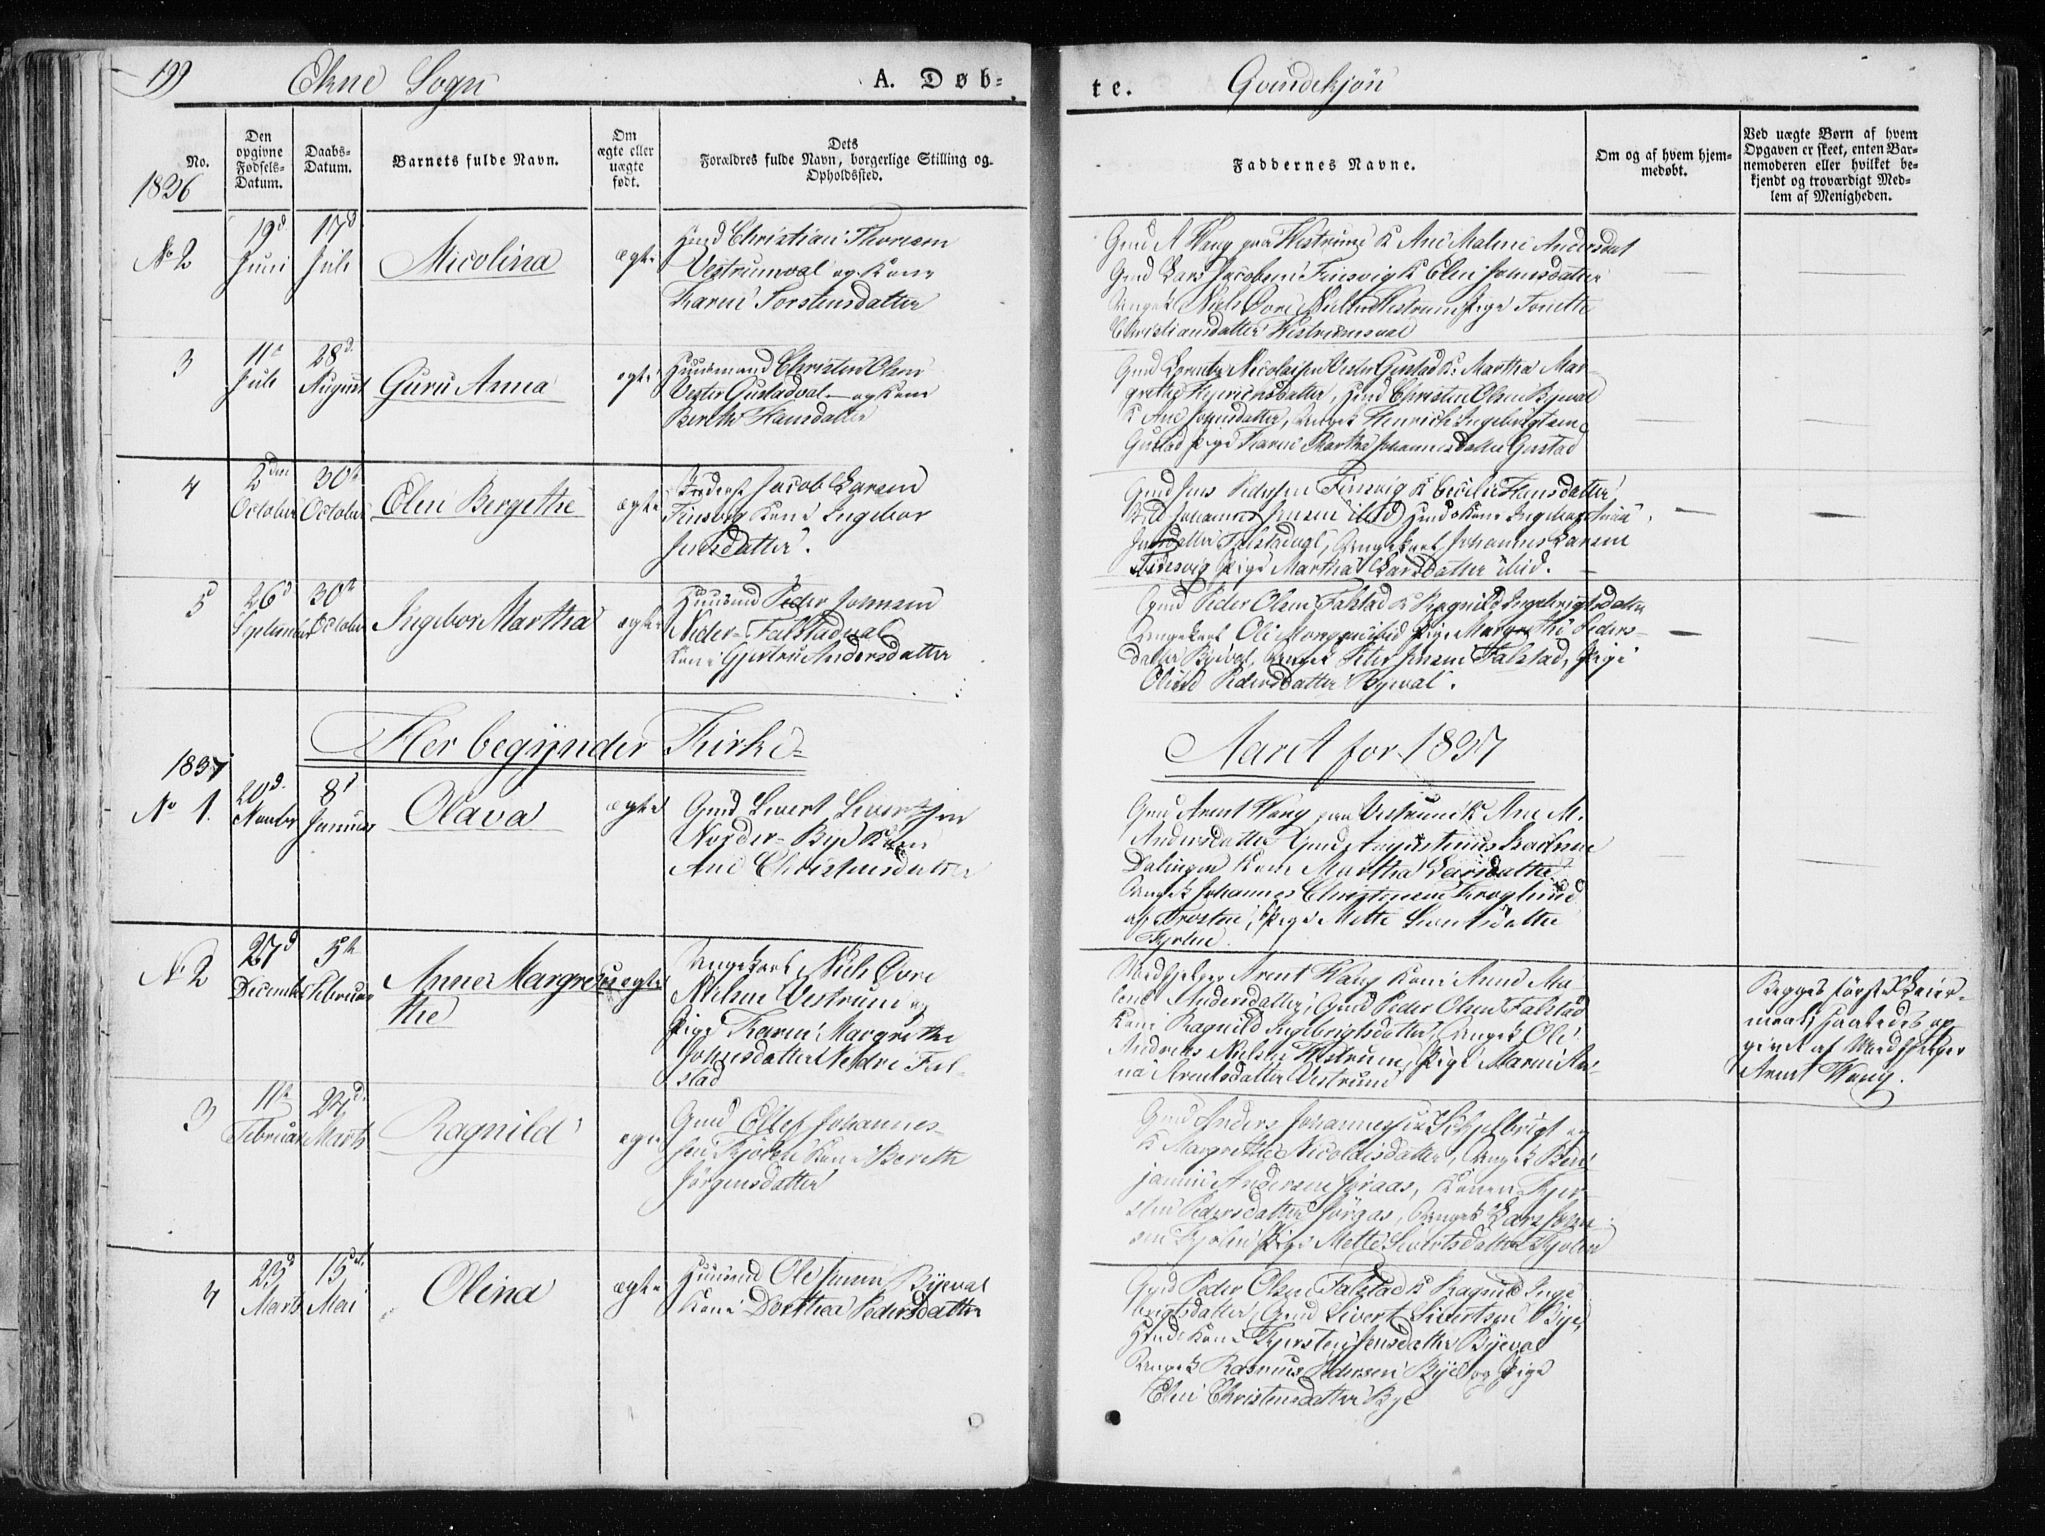 199 Ekne Sogn A. Døb-
te. Qvindekjøn
No.
Den opgivne Fødsels-Datum.
Daabs-Datum.
Barnets fulde Navn.
Om ægte eller uægte født.
Dets Forældres fulde Navn, borgerlige Stilling og Opholdssted.
Faddernes Navne.
Om og af hvem hjem-
medøbt.
Ved uægte Børn af hvem
Opgaven er skeet, enten Bar-
nemoderen eller hvilket be-
kjendt og troværdigt Med-
lem af Menigheden.
1836
No 2
19d Juni
17d Juli
Nicolina
ægte
Christian
Vestrumval og Kone
Karen Torstensdatter
Gmd A Wang paa Westrum K Ane Malene Andersdat
Gmd Lars Jacobsen Finsvig K Elen Johnsdatter
Ungk Niels Øvre Nielsen Westrum Pige Tonette
Christiansdatter Westrumsval
3
11te Juli
28d August
Guru Anna
ægte
Huusmand Christen Olsen
Vester Gustadval og Kone
Bereth Hansdatter
Gmd Lorents Nicolaisen Vester Gustad K. Martha Mar-
grethe Henrichsdatter, Christen Olsen Byeval
K Ane Johnsdatter, Ungk Henrich Ingebrigtsen
Gustad Pige Karen Martha Johannesdatter Gustad
4
2den October
30te October
Elen Bergethe
ægte
Jacob Larsen
Finsvig Kone Ingebor
Jensdatter.
Gmd Jens Pedersen Finsvig K Cecilie Hansdatter
Johannes Jensen ibid Kone Ingeborg Anna
Falstadval, Ungekarl Johannes Larsen
Finsvig Pige Martha Larsdatter ibid.
5
26d September
30te October
Ingebor Martha
ægte
Huusmd Peder Johnsen
Neder-Falstadval
Kone Gjertru Andersdatter
Gmd Peder Olsen Falstad K Ragnild Ingebrigtsdatter
Ungekarl Ole ibid Pige Margrethe Peders-
datter Byeval, Ungk Peter Jensen Falstad, Pige
Oline Pedersdatter Byeval.
Her begynder Kirke-
Aaret for 1837
1837
No 1.
20d Novbr
8d Januar
Olava
ægte
Gmd Sivert Sivertsen
Norder-Bye Kone
Ane Christensdatter
Gmd Arent Wang paa Vestrum K Ane M.
Andersdatter Gmd Augustinus
Kone Martha Larsdatter
Ungk Johannes Christensen
Pige Mette Sivertsdatter
No 2
27d December
5te Februar
Anne Margre-
the
uegte
Ungekarl Niels Øvre
Nielsen Vestrum og
Pige Karen Margrethe
Johnsdatter Nedre Fal-
stad
Medhjelper Arent Wang Kone Anne Ma-
lene Andersdatter, Gmd Peder Olsen Falstad
Kone Ragnild Ingebrigtsdatter, Ungek Ole
Andreas Nielsen Vestrum, Pige Maren An-
na Arentsdatter Vestrum
Begges første Leier-
maal, saaledes op-
givet af Medhjelper
Arent Wang.
3
11te Februar
24d Marts
Ragnild
egte
Gmd Ellef Johannes-
sen Kjølen Kone Bereth
Jörgensdatter
Gmd Anders Johannessen og
K Margrethe Nicolaisdatter, Ungk Ben-
jamin Andersen Joraas, Konen Kjer-
sten Pedersdatter Joraas, Ungk Lars
Kjølen Pige Mette Sivertsdatter Kjølen
4
23d Marts
15de Mai
Olina
ægte
Huusmd Ole Jensen Byeval
Kone Dorthea Pedersdatter
Gmd Peder Olsen Falstad K Ragnild Inge-
brigtsdatter, Gmd Sivert Sivertsen Bye,
Kone Kjersten Jensdatter Byeval
Ungk Rasmus Pedersen Bye og Pige
Elen Christensdatter Bye